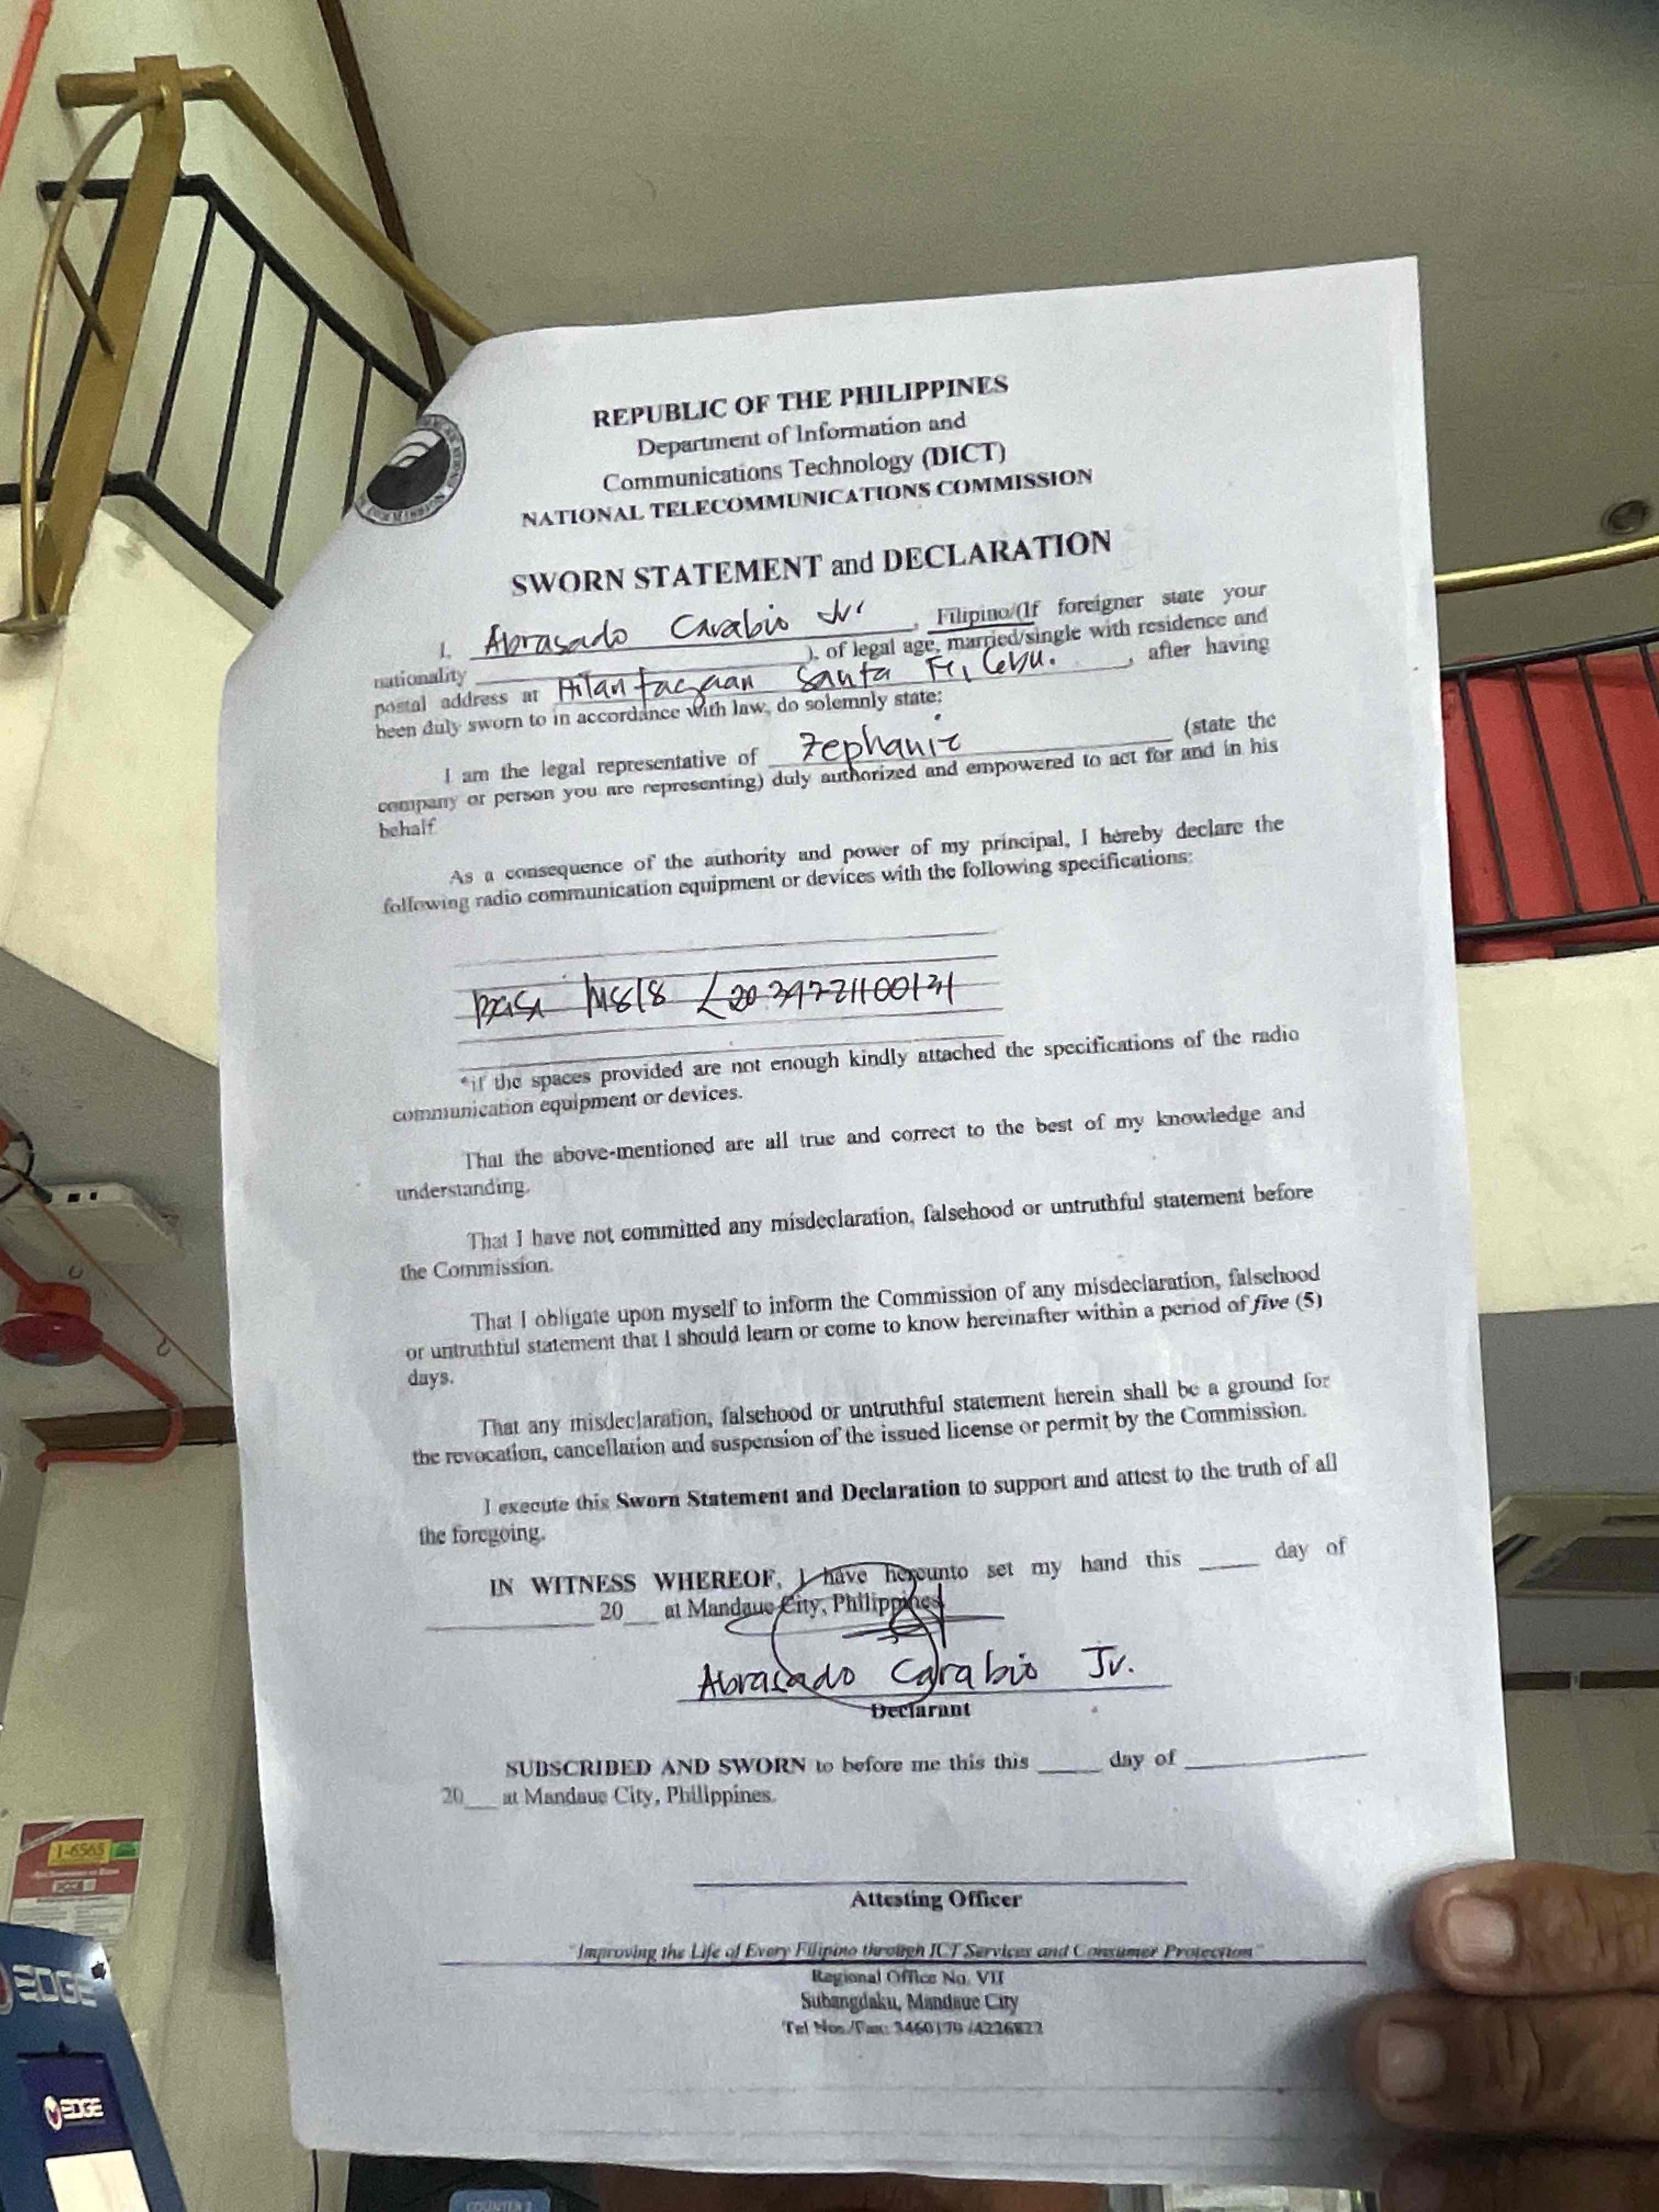 REPUBLIC OF THE PHILIPPINES
Department of Information and
Communications Technology (DICT)
NATIONAL TELECOMMUNICATIONS COMMISSION
SWORN STATEMENT and DECLARATION
I, Abrasado Carabio Jr. , Filipino/(If foreigner state your
nationality ), of legal age, married/single with residence and
postal address at Hilantagaan Santa Fe, Cebu. , after having
been duly sworn to in accordance with law, do solemnly state:
I am the legal representative of Zephanie (state the
company or person you are representing) duly authorized and empowered to act for and in his
behalf.
As a consequence of the authority and power of my principal, I hereby declare the
following radio communication equipment or devices with the following specifications:
M818
*if the spaces provided are not enough kindly attached the specifications of the radio
communication equipment or devices.
That the above-mentioned are all true and correct to the best of my knowledge and
understanding.
That I have not committed any misdeclaration, falsehood or untruthful statement before
the Commission.
That I obligate upon myself to inform the Commission of any misdeclaration, falsehood
or untruthful statement that I should learn or come to know hereinafter within a period of five (5)
days.
That any misdeclaration, falsehood or untruthful statement herein shall be a ground for
the revocation, cancellation and suspension of the issued license or permit by the Commission.
I execute this Sworn Statement and Declaration to support and attest to the truth of all
the foregoing.
IN WITNESS WHEREOF, I have hereunto set my hand this ____ day of
____ 20__ at Mandaue City, Philippines.
Abrasado Carabio Jr.
Declarant
SUBSCRIBED AND SWORN to before me this this ____ day of ____
20__ at Mandaue City, Philippines.
Attesting Officer
"Improving the Life of Every Filipino through ICT Services and Consumer Protection"
Regional Office No. VII
Subangdaku, Mandaue City
Tel Nos./Fax: 3460179 /4226822
1-6565
EDGE
EDGE
COUNTER 2